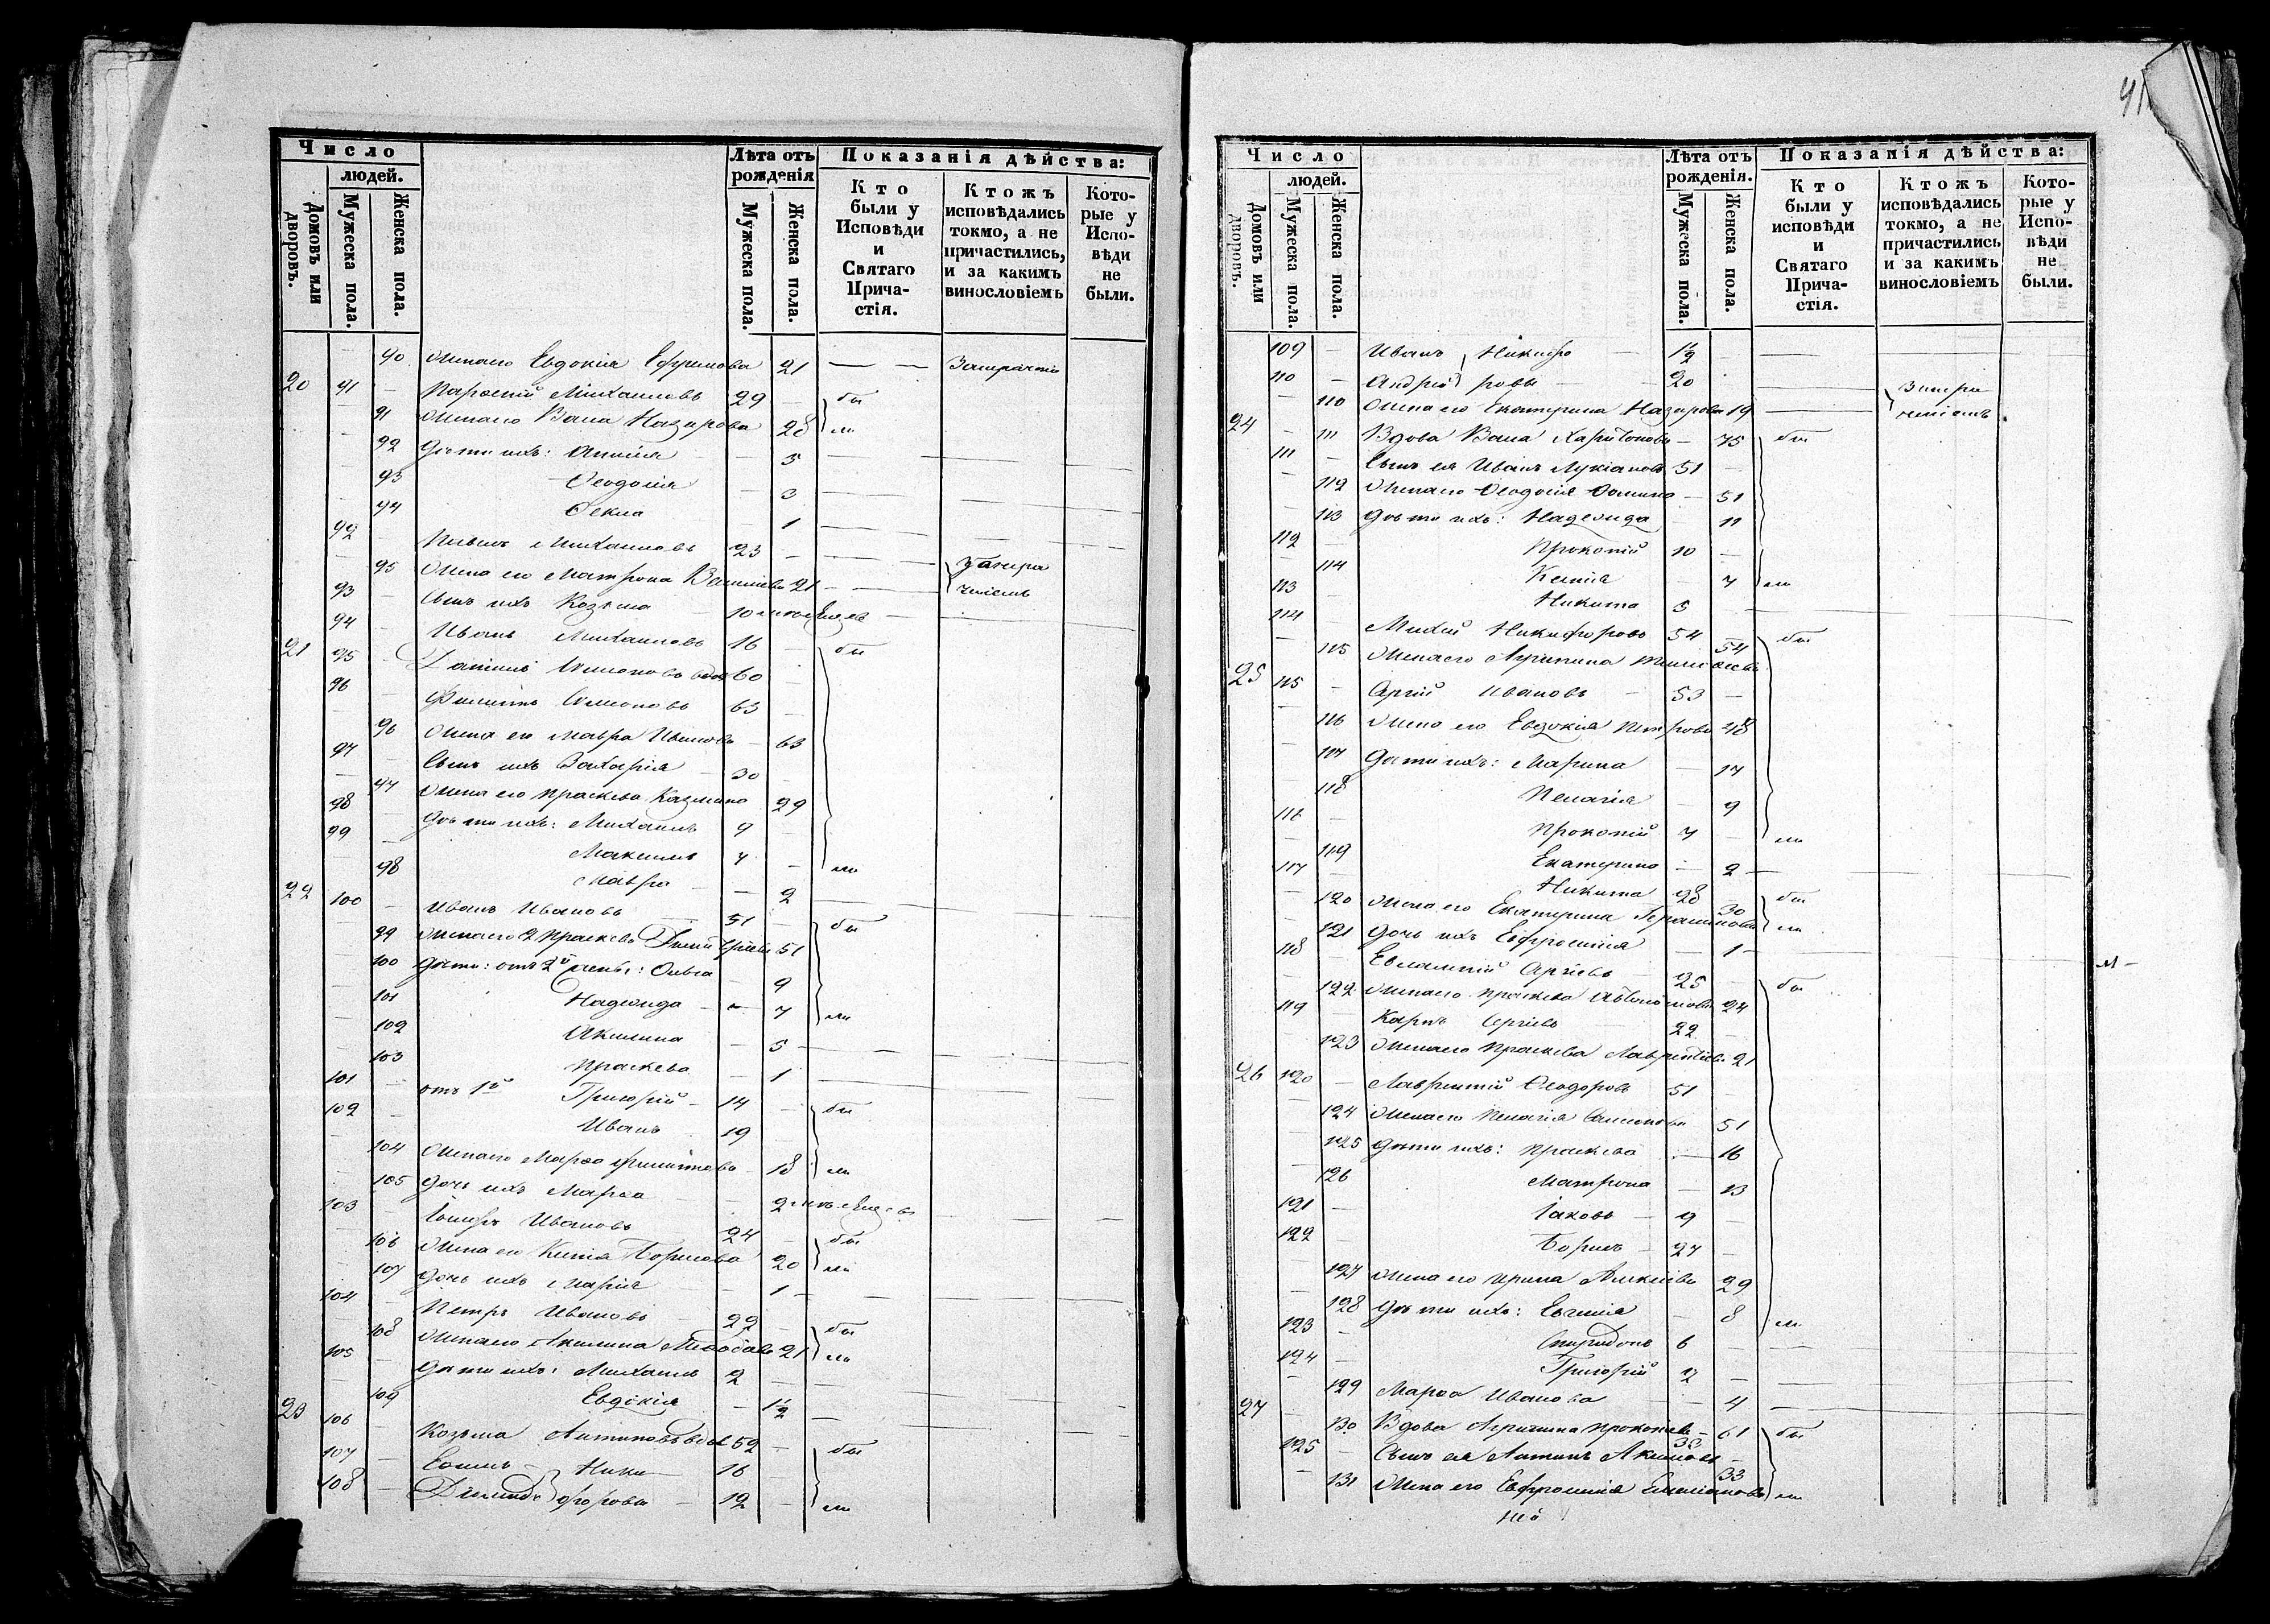 Число людей. Лѣта отъ рожденія Показанія дѣйства:
Домовъ или дворовъ. Мужеска пола. Женска пола. Мужеска пола. Женска пола. Кто были у Исповѣди и Святаго Прича-стія. Ктожъ исповѣдались токмо, а не причастились, и за какимъ винословіемъ Кото-рые у Испо-вѣди не были.
90 Жена его Евдокія Ефримова 21
20 91 Михаиловъ 29 бы
91 Жена его Васса Назарова 28 ли
92 Дѣти ихъ: 5
93 Ѳеодосія 3
94 Ѳекла 1
92 Михаиловъ 23
95 Жена его Матрона 21
93 Сынъ ихъ Козьма 10
94 Иванъ Михаиловъ 16 бы
21 95 Даніилъ вдов 60
96 Филиппъ 63
96 Жена его Мавра Иванова 63
97 Сынъ ихъ Захарія 30
97 Жена его Праскева Казмина 29
98 Дѣти ихъ: Михаилъ 9
99 Максимъ 7 ли
98 Мавра 2
22 100 Иванъ Ивановъ 51 бы
99 Жена его 2 Праскева 51
100 Дѣти: отъ 2й жены: Ольга 9
101 Надежда 7 ли
102 Акилина 5
103 Праскева 1
101 отъ 1й Григорій 14 бы
102 Иванъ 19
104 Жена его Марѳа Филиппова 18 ли
105 Дочь ихъ Марѳа 2
103 Ивановъ 24 бы
106 Жена его Ксенія Борисова 20 ли
107 Дочь ихъ Марія 1
104 Петръ Ивановъ 22 бы
108 Жена его Акилина 21 ли
105 Дѣти ихъ: Михаилъ 2
109 Евдокія 1½
23 106 Козьма Антиповъ вдов 52 бы
107 Ники- 16
108 форовы 12 ли
41
Число людей. Лѣта отъ рожденія. Показанія дѣйства:
Домовъ или дворовъ. Мужеска пола. Женска пола. Мужеска пола. Женска пола. Кто были у исповѣди и Святаго Прича-стія. Ктожъ исповѣдались токмо, а не причастились и за какимъ винословіемъ Кото-рые у Испо-вѣди не были.
109 Иванъ Никифо 1½
110 Андрей ровы 20
110 Жена его Екатерина Назарова 19
24 111 Вдова Васса Харитонова 75 бы
111 Сынъ ея Иванъ Лукіановъ 51
112 Жена его Ѳеодосія 51
113 Дѣти ихъ: Надежда 11
112 Прокопій 10
114 Ксенія 7 ли
113 Никита 5
114 Никифоровъ 54 бы
115 Жена его Агрипина 54
25 115 Сергій Ивановъ 53
116 Жена его Евдокія Петрова 48
117 Дѣти ихъ: Марина 17
118 Пелагія 9
116 Прокопій 7 ли
119 Екатерина 2
117 Никита 28 бы
120 Жена его Екатерина Герасимова 30 ли
121 Дочь ихъ Евфросинія 1
118 Евлампій Сергіевъ 25 бы
122 Жена его Праскева 24
119 Карпъ Сергіевъ 22
123 Жена его Праскева Лаврентіева 21
26 120 Лаврентій Ѳеодоровъ 51
124 Жена его Пелагія 51
125 Дѣти ихъ: Праскева 16
126 Матрона 13
121 Іаковъ 9
122 Борисъ 27
127 Жена его Ирина Алексіева 29
128 Дѣти ихъ: Евгенія 8 ли
123 Спиридонъ 6
124 Григорій 2
129 Марѳа Иванова 4
27 130 Вдова Агрипина Прокопіева 61 бы
125 Сынъ ея Антипъ Акимовъ 33
131 Жена его Евфросинія Емеліанова 33 ли